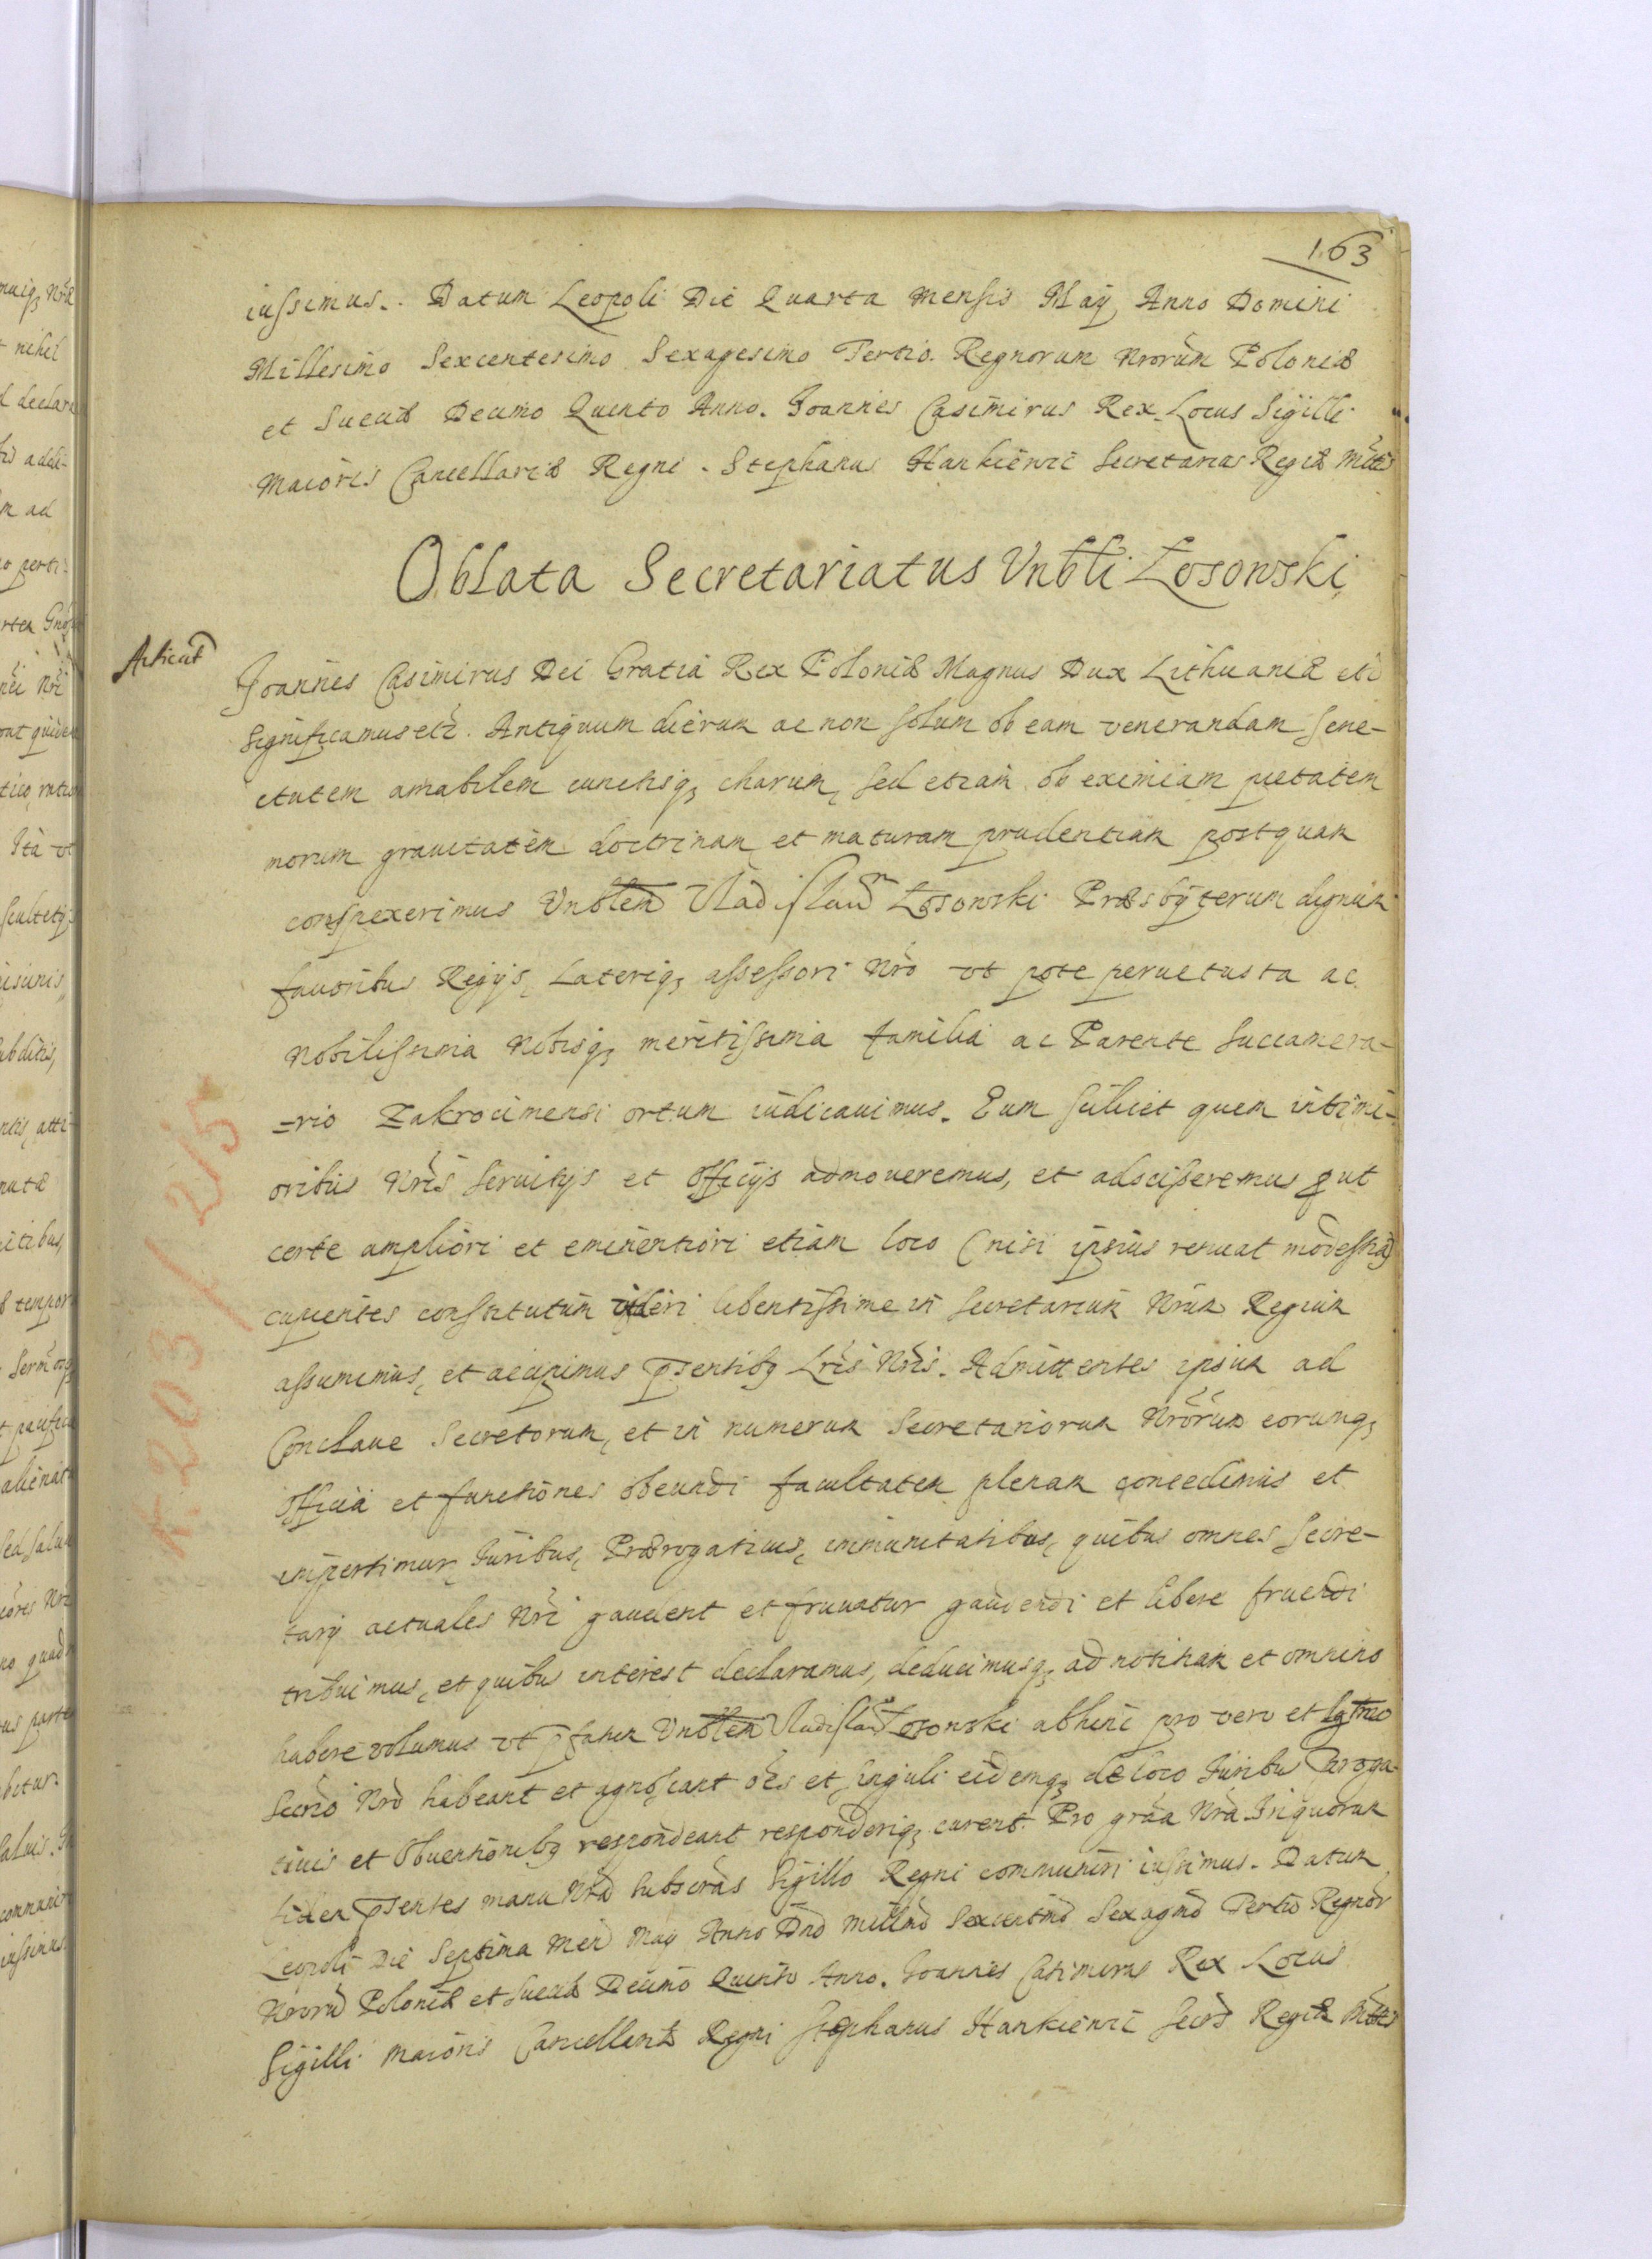 163
iussimus. Datum Leopoli Die Quarta mensis Maÿ Anno Domini
Millesimo Sexcentesimo Sexagesimo Tertio. Regnorum Nrorum Poloniæ
et Sueciæ Decimo Quinto Anno. Joannes Casimirus Rex. Locus Sigilli
Maioris Cancellariæ Regni. Stephanus Hankiewic Secretarius Regiæ Mttis
Oblata Secretariatus Vnbli Łosowski
Joannes Casimirus Dei Gratia Rex Poloniæ Magnus Dux Lithuaniæ etc
Significamus etc. Antiquum dierum ac non solum ob eam venerandam sene-
ctutem amabilem cunctisq3 charum, sed etiam ob eximiam pietatem
morum grauitatem doctrinam et maturam prudentiam postquam
conspexerimus Vnblem Vladislaum Łosowski Præsbyterum dignum
fauoribus Regÿs, Lateriq3 assessori Nro ut pote peruetusta ac
Nobilissima Nobisq3 meritissima familia ac Parente Succamera-
=rio Zakrocimensi ortum iudicauimus. Eum scilicet quem intimi-
oribus Nris seruitÿs et officÿs admoueremus, et adscisseremus ut
certe ampliori et eminentiori etiam loco (nisi ipsius renuat modestia)
cupientes constitutum videri libentissime in Secretarium Nrum Regium
assumimus, et accipimus psentibq Lris Nris. Admittentes ipsum ad
Conclaue Secretorum, et in numerum Secretariorum Nrorum eorumq3
officia et functiones obeundi facultatem plenam concedimus et
impertimur, Iuribus, Prærogatiuis, immunitatibus, quibus omnes Secre-
tarÿ actuales Nri gaudent et fruuntur gaudendi et libere fruendi
tribuimus, et quibus interest declaramus, deducimusq3 ad notitiam et omnino
habere volumus ut pfatum Vnblem Vladislaum Łosowski abhinc pro vero et lgttimo
Secrio Nro habeant et agnoscant oes et singuli eidemq3 de loco Iuribus Preroga
tiuis et obuentionibq respondeant responderiq3 curent. Pro gratia Nra In quorum
fidem psentes manu Nra subscras Sigillo Regni communiri iussimus. Datum
Leopoli Die Septima Men Maÿ Anno Dno Millmo Sexcentmo Sexagmo Tertio Regnor
Nrorum Poloniæ et Sueciæ Decimo Quinto Anno. Joannes Casimirus Rex Locus
Sigilli Maioris Cancellariæ Regni Stephanus Hankiewic Secrs Regiæ Mttis